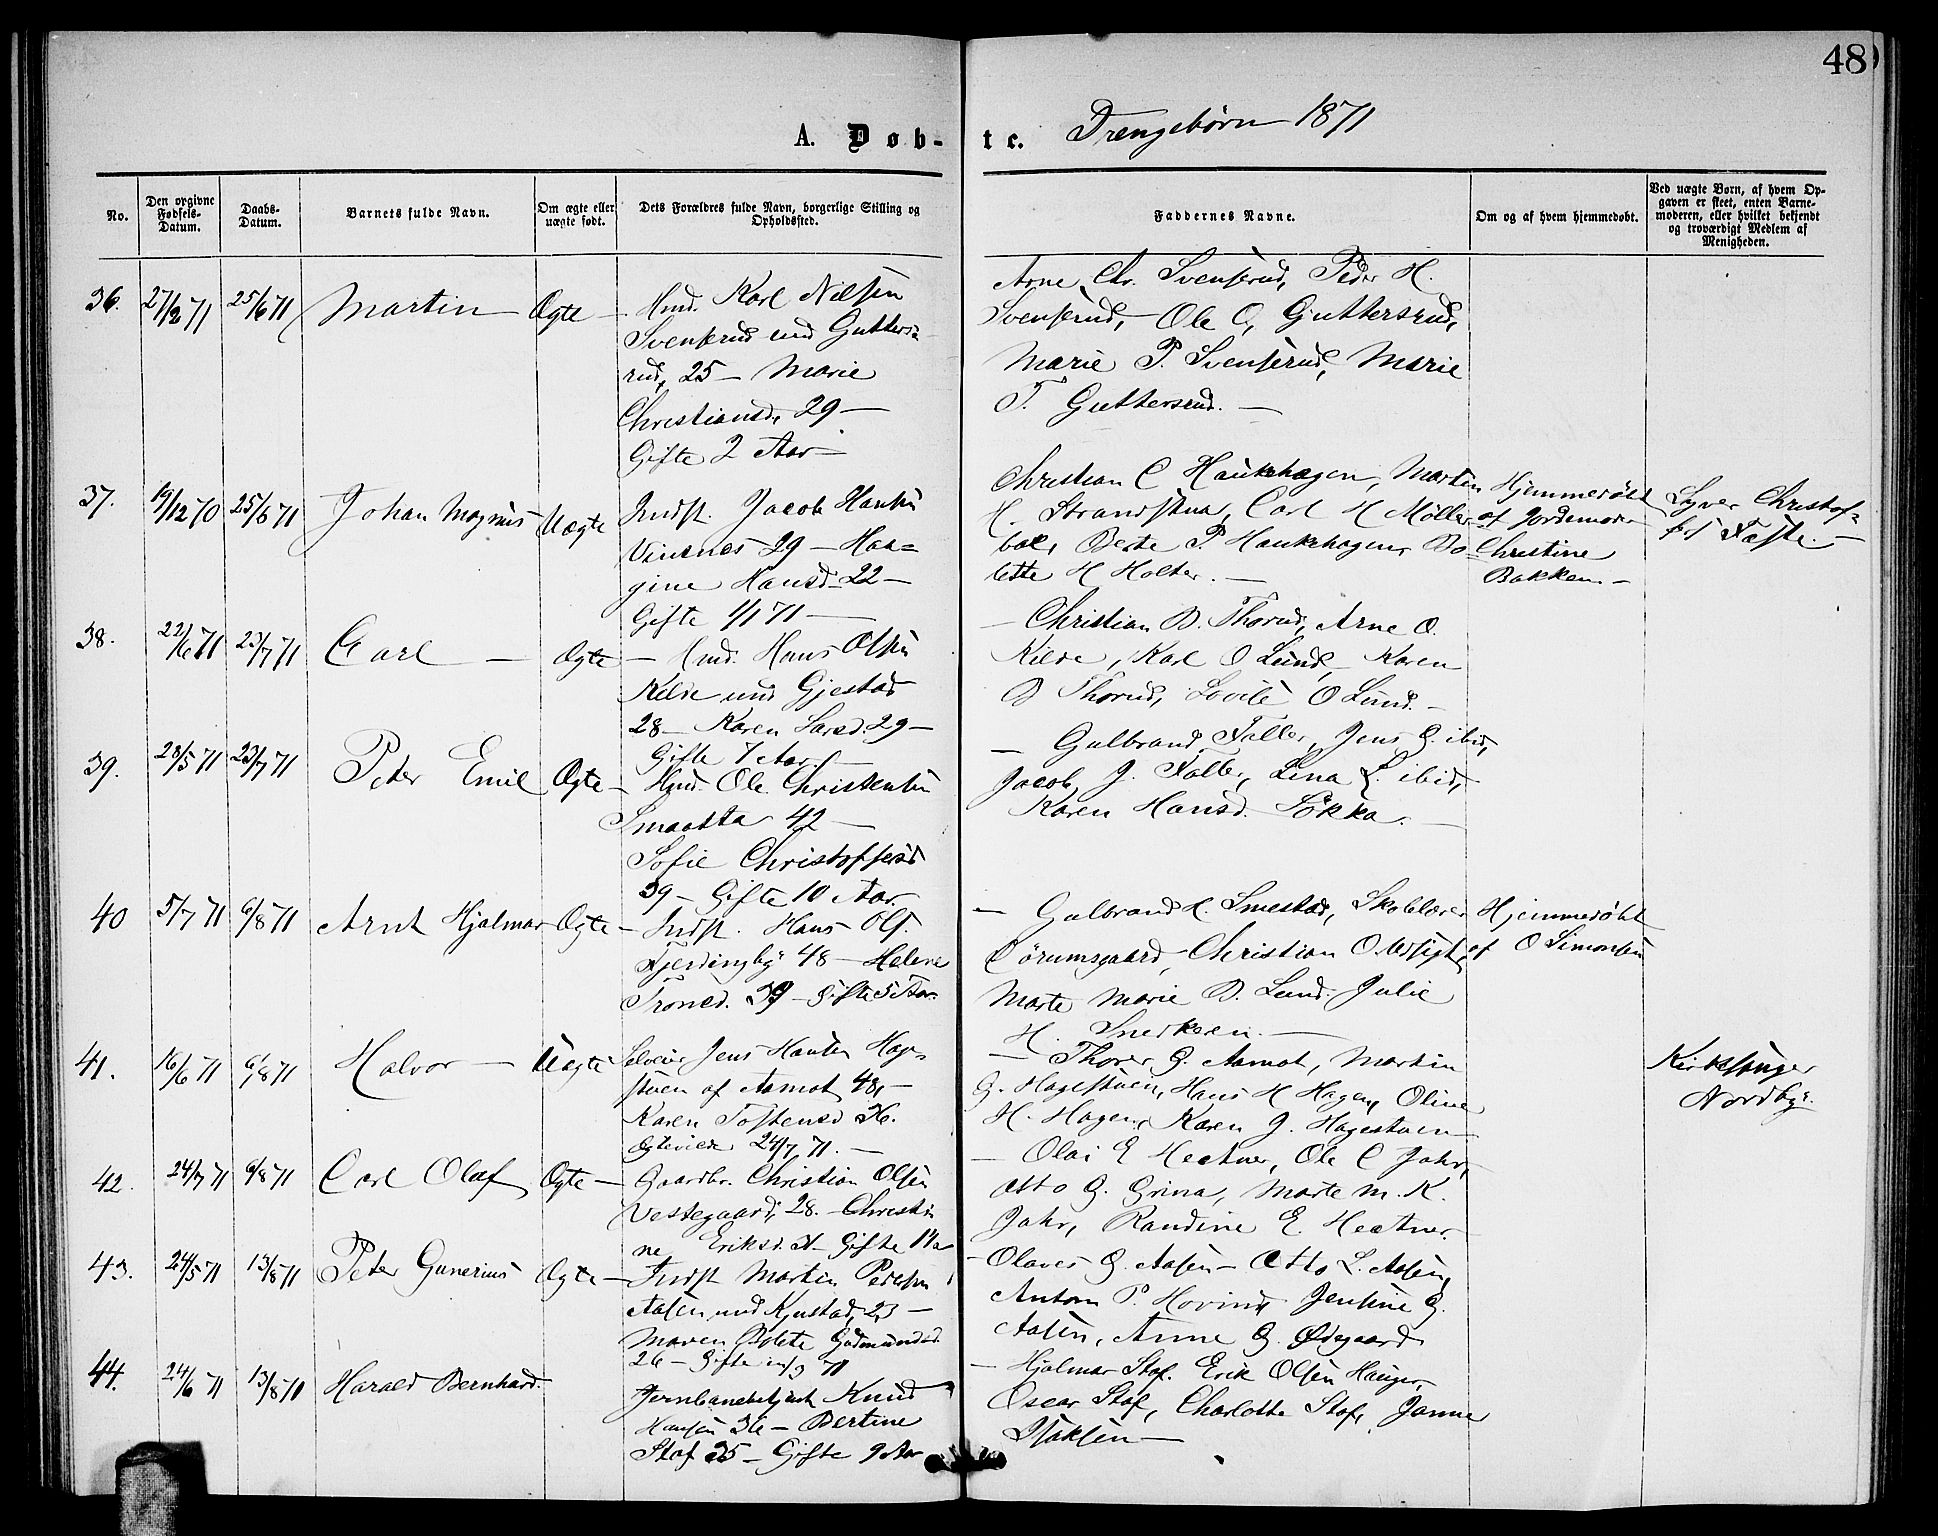 48
A. Døb-
te. Drengebørn 1871
No.
Den opgivne Fødsels-Datum.
Daabs-Datum.
Barnets fulde Navn.
Om ægte eller uægte født.
Dets Forældres fulde Navn, borgerlige Stilling og Opholdssted.
Faddernes Navne.
Om og af hvem hjemmedøbt.
Ved uægte Børn, af hvem Opgaven er skeet, enten Barnemoderen, eller hvilket bekjendt og troværdigt Medlem af Menigheden.
36. 27/2 71 25/6 71 Martin — Ægte —
Hmd. Karl Nilsen
Svenserud und Gutters-
rud, 25 — Marie
Christiansd. 29 —
Gifte 2 Aar —
Arne Chr. Svenserud, Peder H.
Svenserud, Ole O. Guttersrud,
Marie P. Svenserud, Marie
T. Guttersrud. —
37. 19/12 70 25/6 71 Johan Magnus Uægte
Indst. Jacob Hansen
Vinenes 29 — Han-
gine Hansd. 22 —
Gifte 1/1 71 —
Christian C Haukehagen, Martin
H. Strandstua, Carl H Møller-
bol, Berte P. Haukehagen, Bo-
lette H Holter. —
Hjemmedøbt
af Jordemoder
Christine
Bakken —
Syver Christof-
fers Faste. —
38. 22/6 71 23/7 71 Carl — Ægte —
Hmd. Hans Olsen
Kilde und Gjestad
28 — Karen Larsd. 29 —
Gifte 7 Aar. —
— Christian D. Thorud, Arne O.
Kilde, Karl O Lund — Karen
D Thorud, Lovise O Lund. —
39. 28/5 71 23/7 71 Peter Emil Ægte —
Hmd. Ole Christensen
Smaatta 42 —
Sofie Christoffersd
39 — Gifte 10 Aar.
— Gulbrand Faller, Jens G. ibid,
Jacob J. Faller, Lina L. ibid,
Karen Hansd. Løkka. —
40 5/7 71 6/8 71 Arnt Hjalmar Ægte —
Indst. Hans Ols.
Fjerdingby 48 — Helene
Tronsd. 39 — Gifte 5 Aar.
— Gulbrand H. Smestad, Skolelærer
Cørumsgaard, Christian O
Marte Marie D. Lund. Julie
H. Snekkeren. —
Hjemmedøbt
af O Simonsen
41. 16/6 71 6/8 71 Halvor — Uægte
Selveier Jens Hansen Hage-
stuen af Aamot 48, —
Karen Tostensd 36.
Ægteviede 24/7 71. —
— Thorer G. Aamot, Martin
G. Hagestuen, Hans H Hagen, Oline
H. Hagen, Karen J. Hagestuen —
Kirkesanger
Nordby.
42. 24/7 71 6/8 71 Carl Olaf Ægte —
Gaardbr. Christian Olsen
Vestegaard, 28. — Christi-
ne Eriksd. 21 — Gifte 1 Aar
— Olai E Hectner, Ole C Jahr,
Otto G. Grina, Marte M. K.
Jahr, Randine E. Hectner.
43. 24/5 71 13/8 71 Peter Gunerius Ægte —
Indst Martin Pedersen
Aasen und Kjustad, 23 —
Maren Bolete Gudmundsd
26 — Gifte /3 71
— Olaves G. Aasen — Otto L. Aasen,
Anton P. Hovind Jensine G.
Aasen, Anne G. Ødegaard
44. 24/6 71 13/8 71 Harald Bernhard.
Jernbanebetjent Knud
Hansen 36 — Bertine
Stof 35 — Gifte 9 Aar
— Hjalmar Stof. Erik Olsen Hauger,
Oscar Stof, Charlotte Stof, Janna
Isaksen —